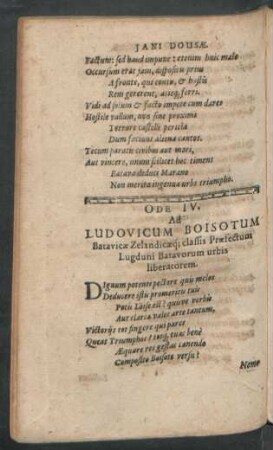 JANI DOUSÆ.
Factum: sed haud impune: etenim huic malo
Occursum erat jam, dispositis priùs
A fronte, qui contu, & hastis
Rem gererent, aciéq; ferri.
Vidi ad solum & facto impetu cum daret
Hostile vallum, non sine proximo
Terrore castelli, pericla
Dum faciunt aliena cautos.
Tecum paratis civibus aut mori,
Aut vincere, unum scilicet hoc timent
Batava deduci Marano
Non merita ingenua urbe triumpho.
ODE IV.
Ad
LUDOVICUM BOISOTUM
Batavicæ Zelandicæq; classis Præfectum
Lugduni Batavorum urbis
liberatorem.
DIgnum potenti pectore quis melos
Deducere istis promeritis tuis
Potis Läise est? quisve verbis
Aut clarâ valet arte tantum,
Victorijs tot fingere qui pares
Queat Triumphos? tuaq; tuas benè
Æquare res gestas canendo
Composito Boisote versu?
Nemo